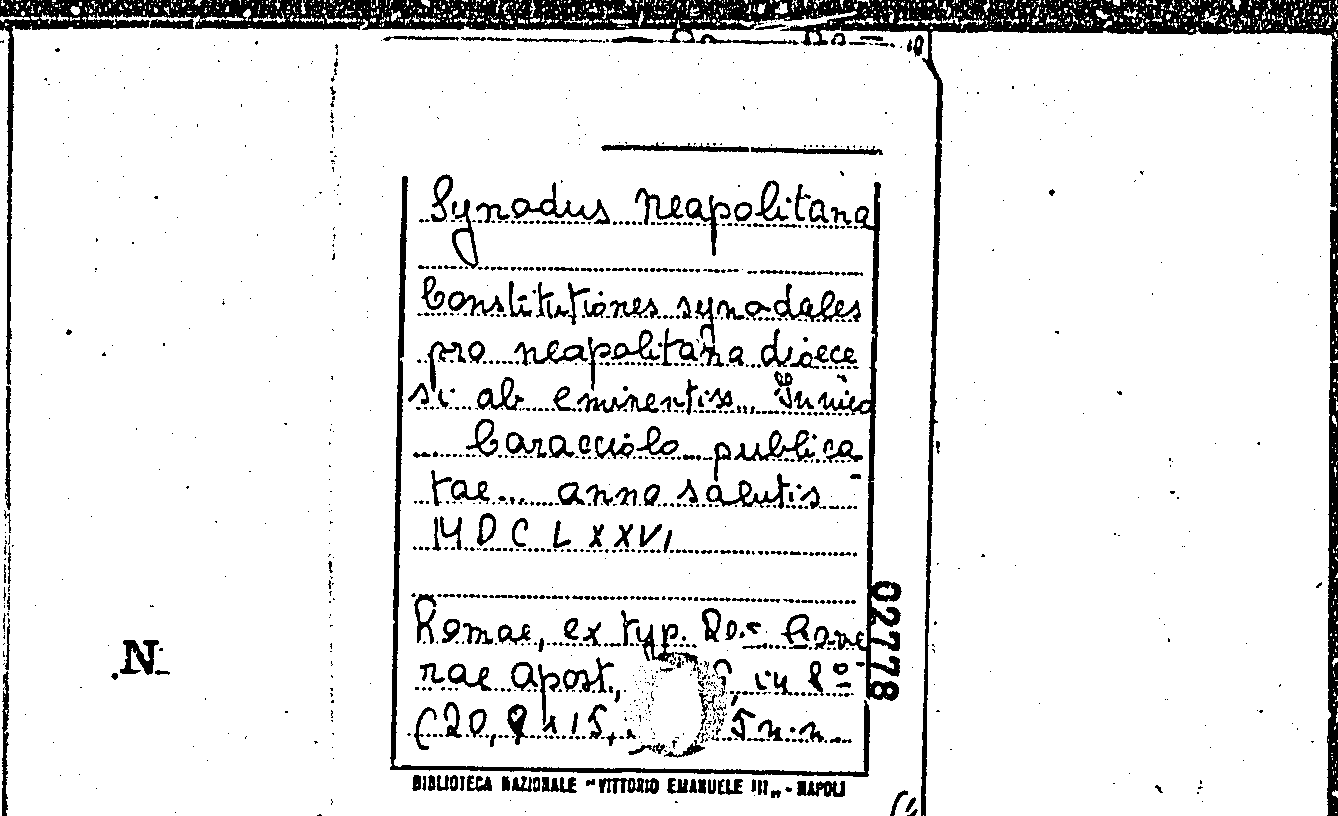 Synodus neapolitana
Constitutiones synodales
pro neapolitana dioece
si ab eminentiss... Innico
... Caracciolo... publica-
tae... anno salutis
MDCLXXVI
Romae, ex typ. Rev. Came
rae Apost., in 8º
(20, 15, 5 n.n.
BIBLIOTECA NAZIONALE "VITTORIO EMANUELE III„ - NAPOLI
02778
.N.